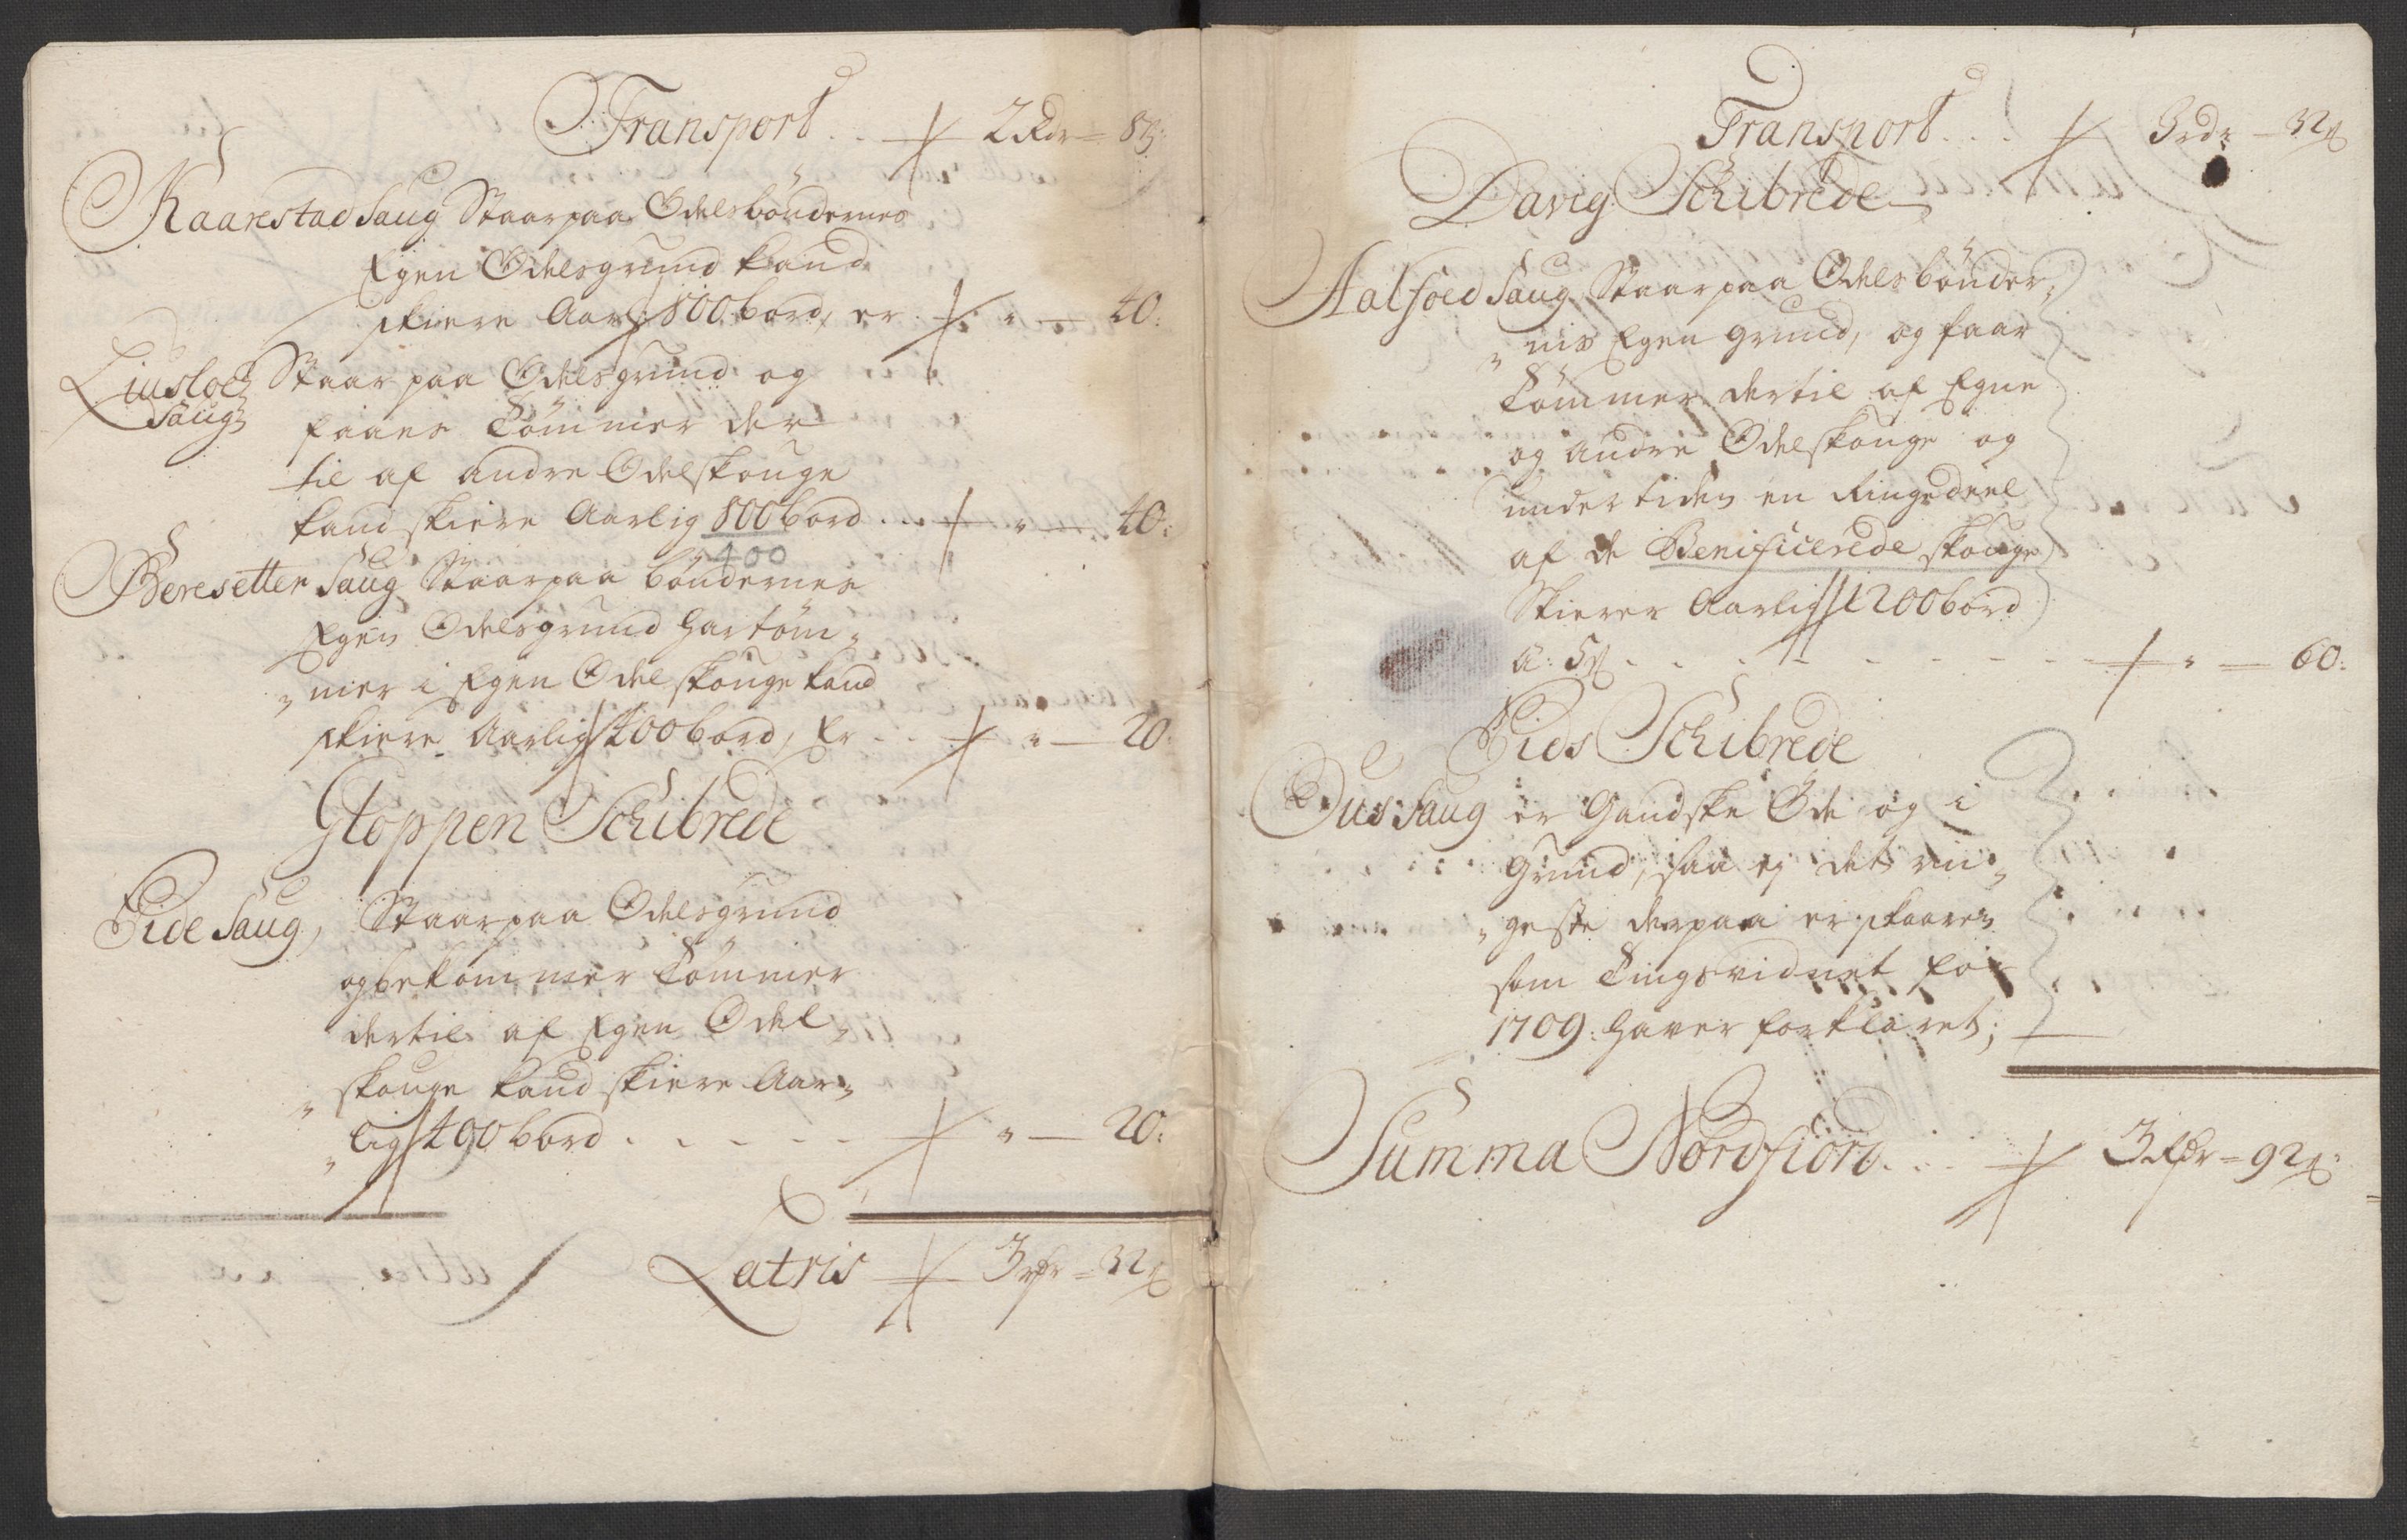 Transport . . 2 Rdr = 8ß:
Kaarestad Saug Staar paa Odelsbøndernes
Egen Odelsgrund kand
skiere Aarl: 800 bord, er . " — 40:
Liusloed Staar paa Odelsgrund og
Saug
faaes Tømmer der
til af andre Odelskouge
kand skiere Aarlig 800 bord . . . " — 40:
400
Beresetter Saug Staar paa bøndernes
Egen Odelsgrund har tøm„
„mer i Egen Odelskouge kand
skiere Aarlig 400 bord, Er . . " — 20
Gloppen Schibrede
Eide Saug, Staar paa Odelsgrund
og bekommer Tømmer
dertil af Egen Odel„
„skouge kand skiere Aar„
„lig 400 bord . . . . . " — 20:
Latris 3 rdr = 32ß
Transport . . . 3 rdr — 32ß
Davig Schibrede
Aalfoed Saug Staar paa Odelsbønder„
„nis Egen grund, og faar
Tømmer dertil af Egne
og andre Odelskouge og
undertiden en Ringe deel
af de Benificerede skouge
Skierer Aarlig 1200 bord
a: 5ß . . . . . . . . " — 60:
Eids Schibrede
Øus Saug er Gandske Øde og i
Grund, saa ej det rin„
„geste derpaa er skaaren
som Tingsvidnet for
1709: haver forklaret;
Summa Nordfiord . . . 3 Rdr = 92ß: